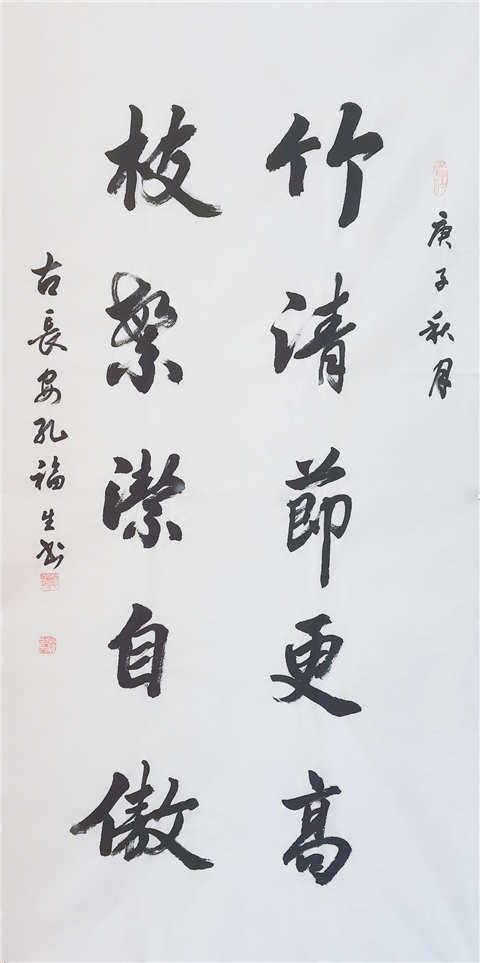 庚子秋月
竹清節更高
枝繁潔自傲
古長安孔福生书